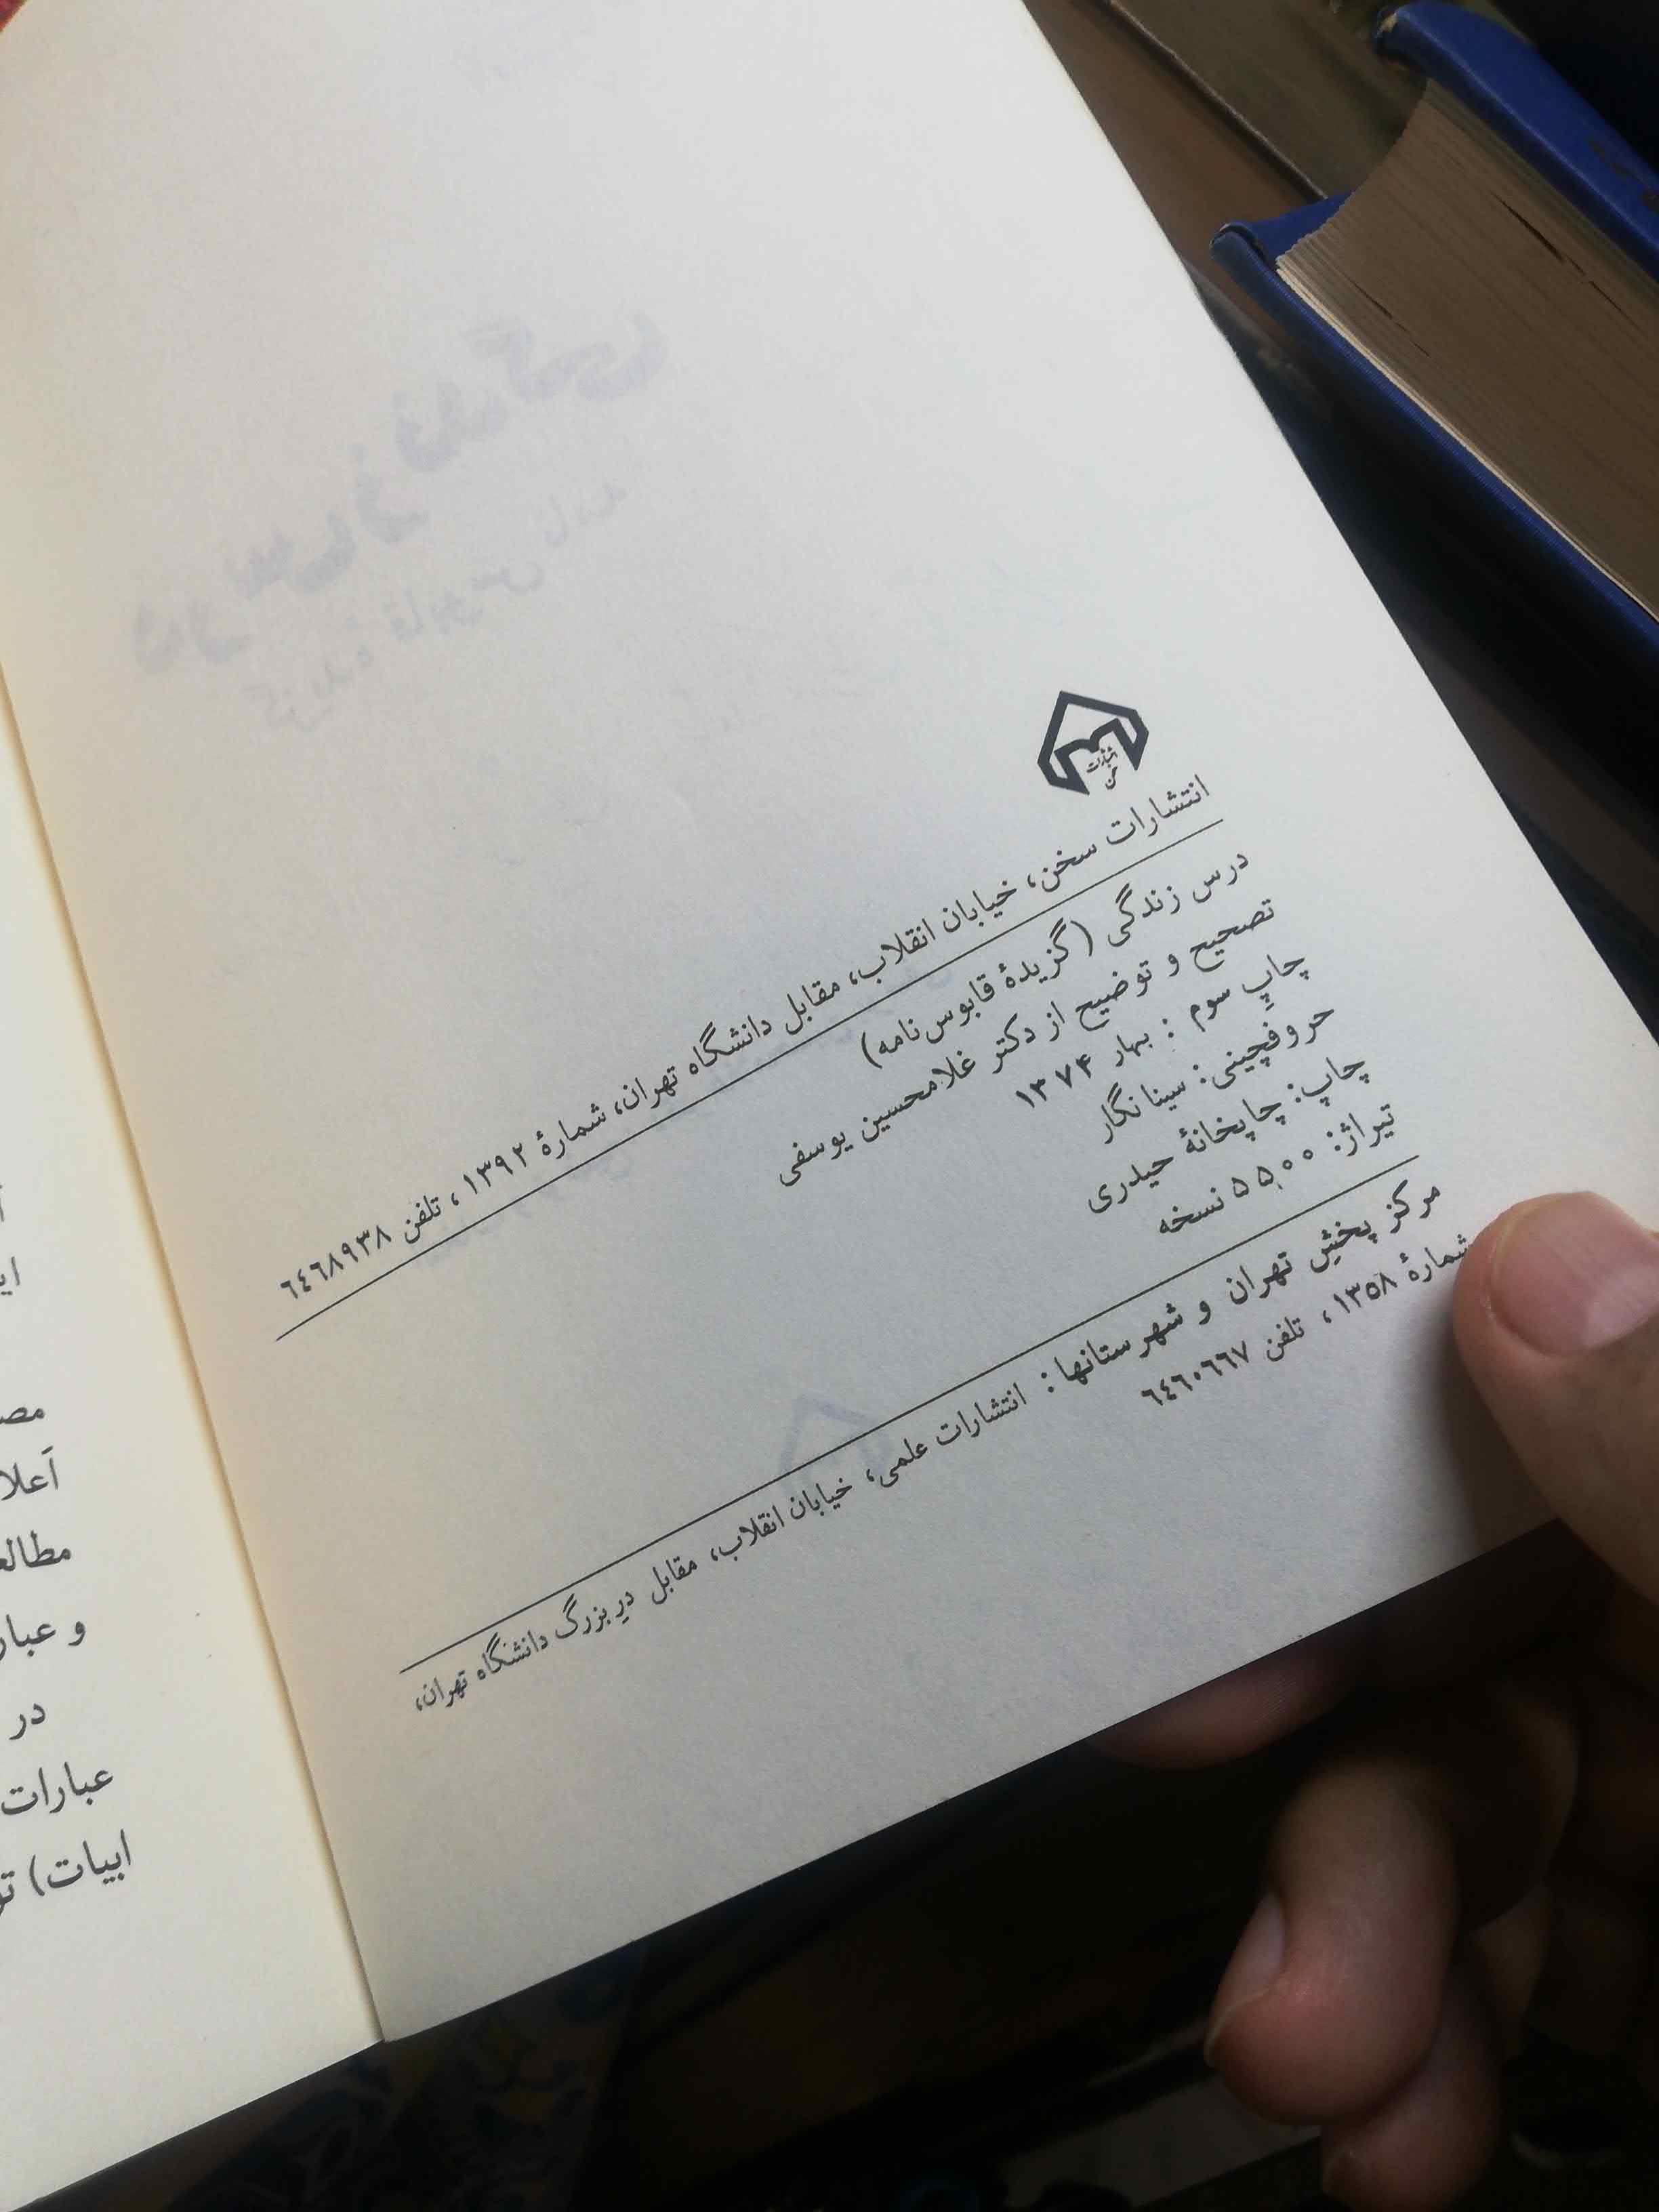 انتشارات
سخن
انتشارات سخن، خیابان انقلاب، مقابل دانشگاه تهران، شمارهٔ ۱۳۹۲، تلفن ٦٤٦٨٩٣٨
درس زندگی (گزیدهٔ قابوس‌نامه)
تصحیح و توضیح از دکتر غلامحسین یوسفی
چاپِ سوم : بهار ۱۳۷۴
حروفچینی: سینا نگار
چاپ: چاپخانهٔ حیدری
تیراژ: ۵۵۰۰ نسخه
مرکز پخشِ تهران و شهرستانها : انتشارات علمی، خیابان انقلاب، مقابل درِ بزرگ دانشگاه تهران،
شمارهٔ ۱۳۵۸، تلفن ٦٤٦٠٦٦٧
و
در
عبارات
ابیات)